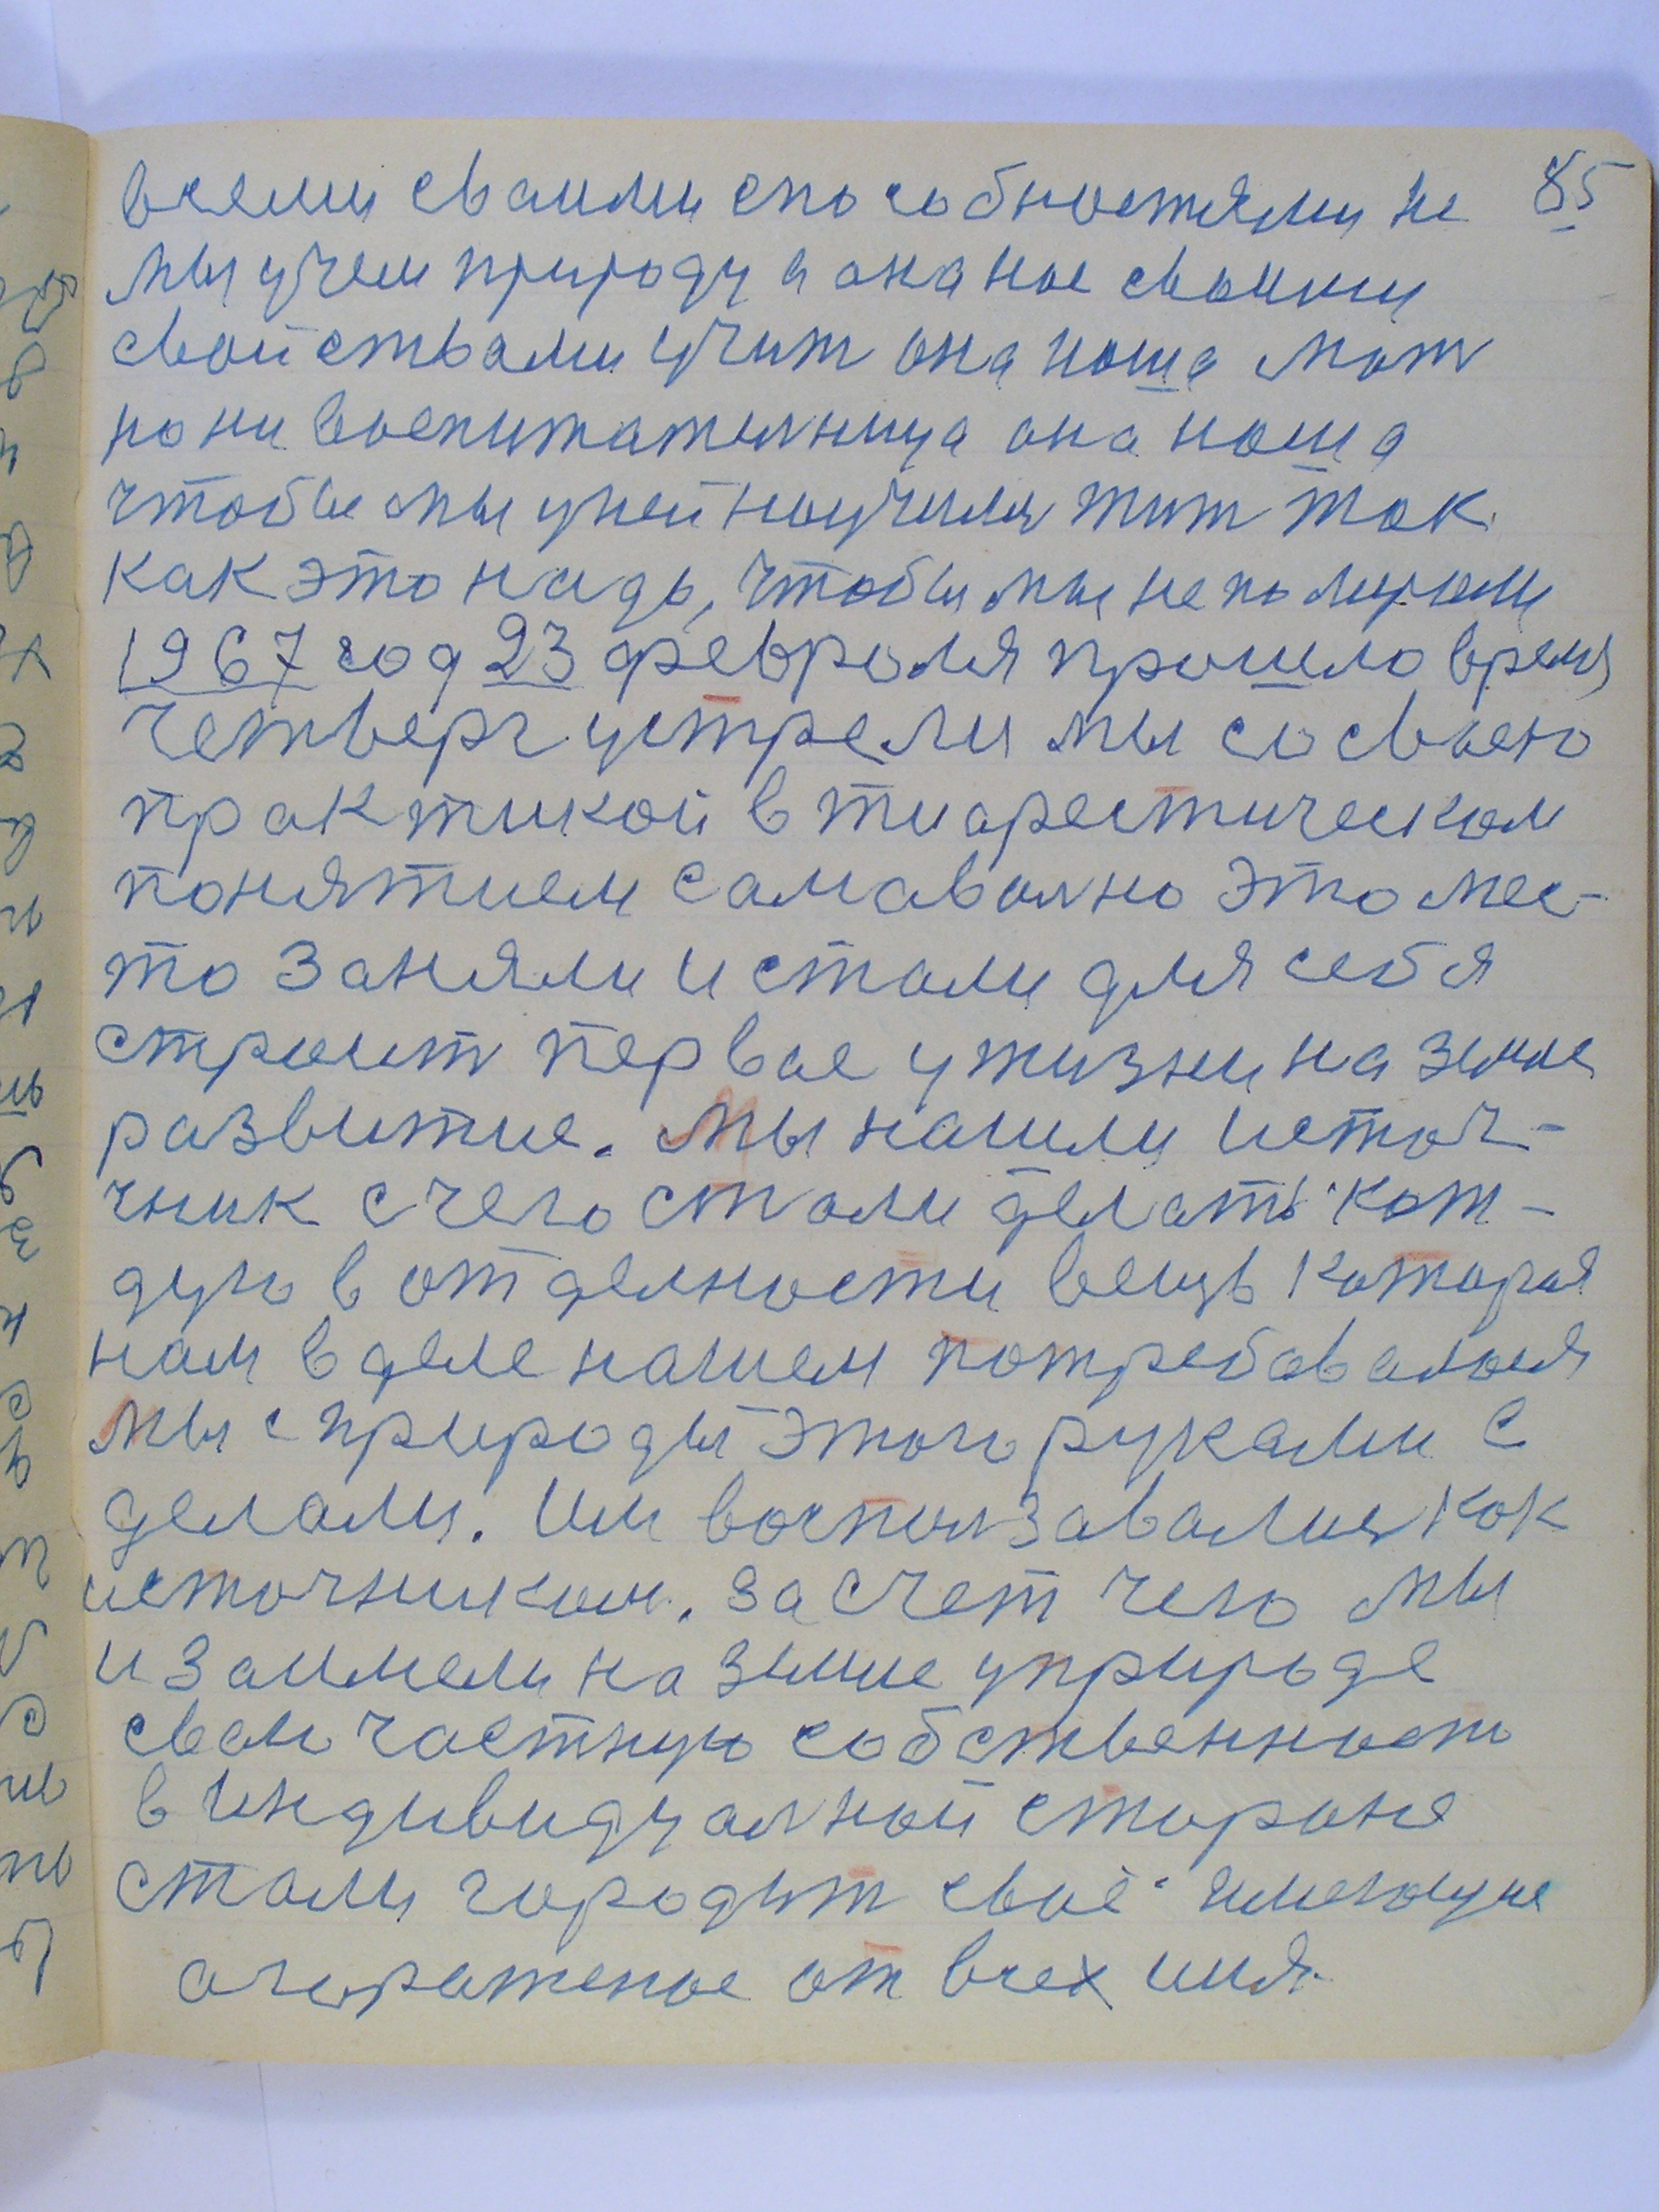 85
всеми сваими способностями не
мы учем природу а она нас своими
свойствами учит она наша мат
рони воспитателница она наша
чтобы мы уней научиля жит так
как это надо, чтобы мы не помирали
1967 год 23 февроля прошло время
четверг устрели мы со своею
практикой в тиарестическом
понятием самаволно это мес-
то заняли и стали для себя
строит первое ужизни на земле
развитие. мы нашли источ-
чник с чего стали делать каж-
дую в отделности вещь которая
нам в деле нашем потребавалося
мы с природы этого руками с
делали. им воспользавалися как
источником. за счет чего мы
и заимели на земле уприроде
сваю частную собственност
в индивидуалной стороне
стали городит своё имеющие
агораженое от всех имя